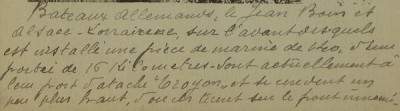 Bateaux Allemands, le Jean Boin et
Alsace-Lorraine, sur l'avant desquels
est installé une pièce de marine de 240, d'une
portée de 16 Kilomètres - sont actuellement à
leur port d'attache Troyon, et se
peu plus haut, d'où ils tirent sur le front